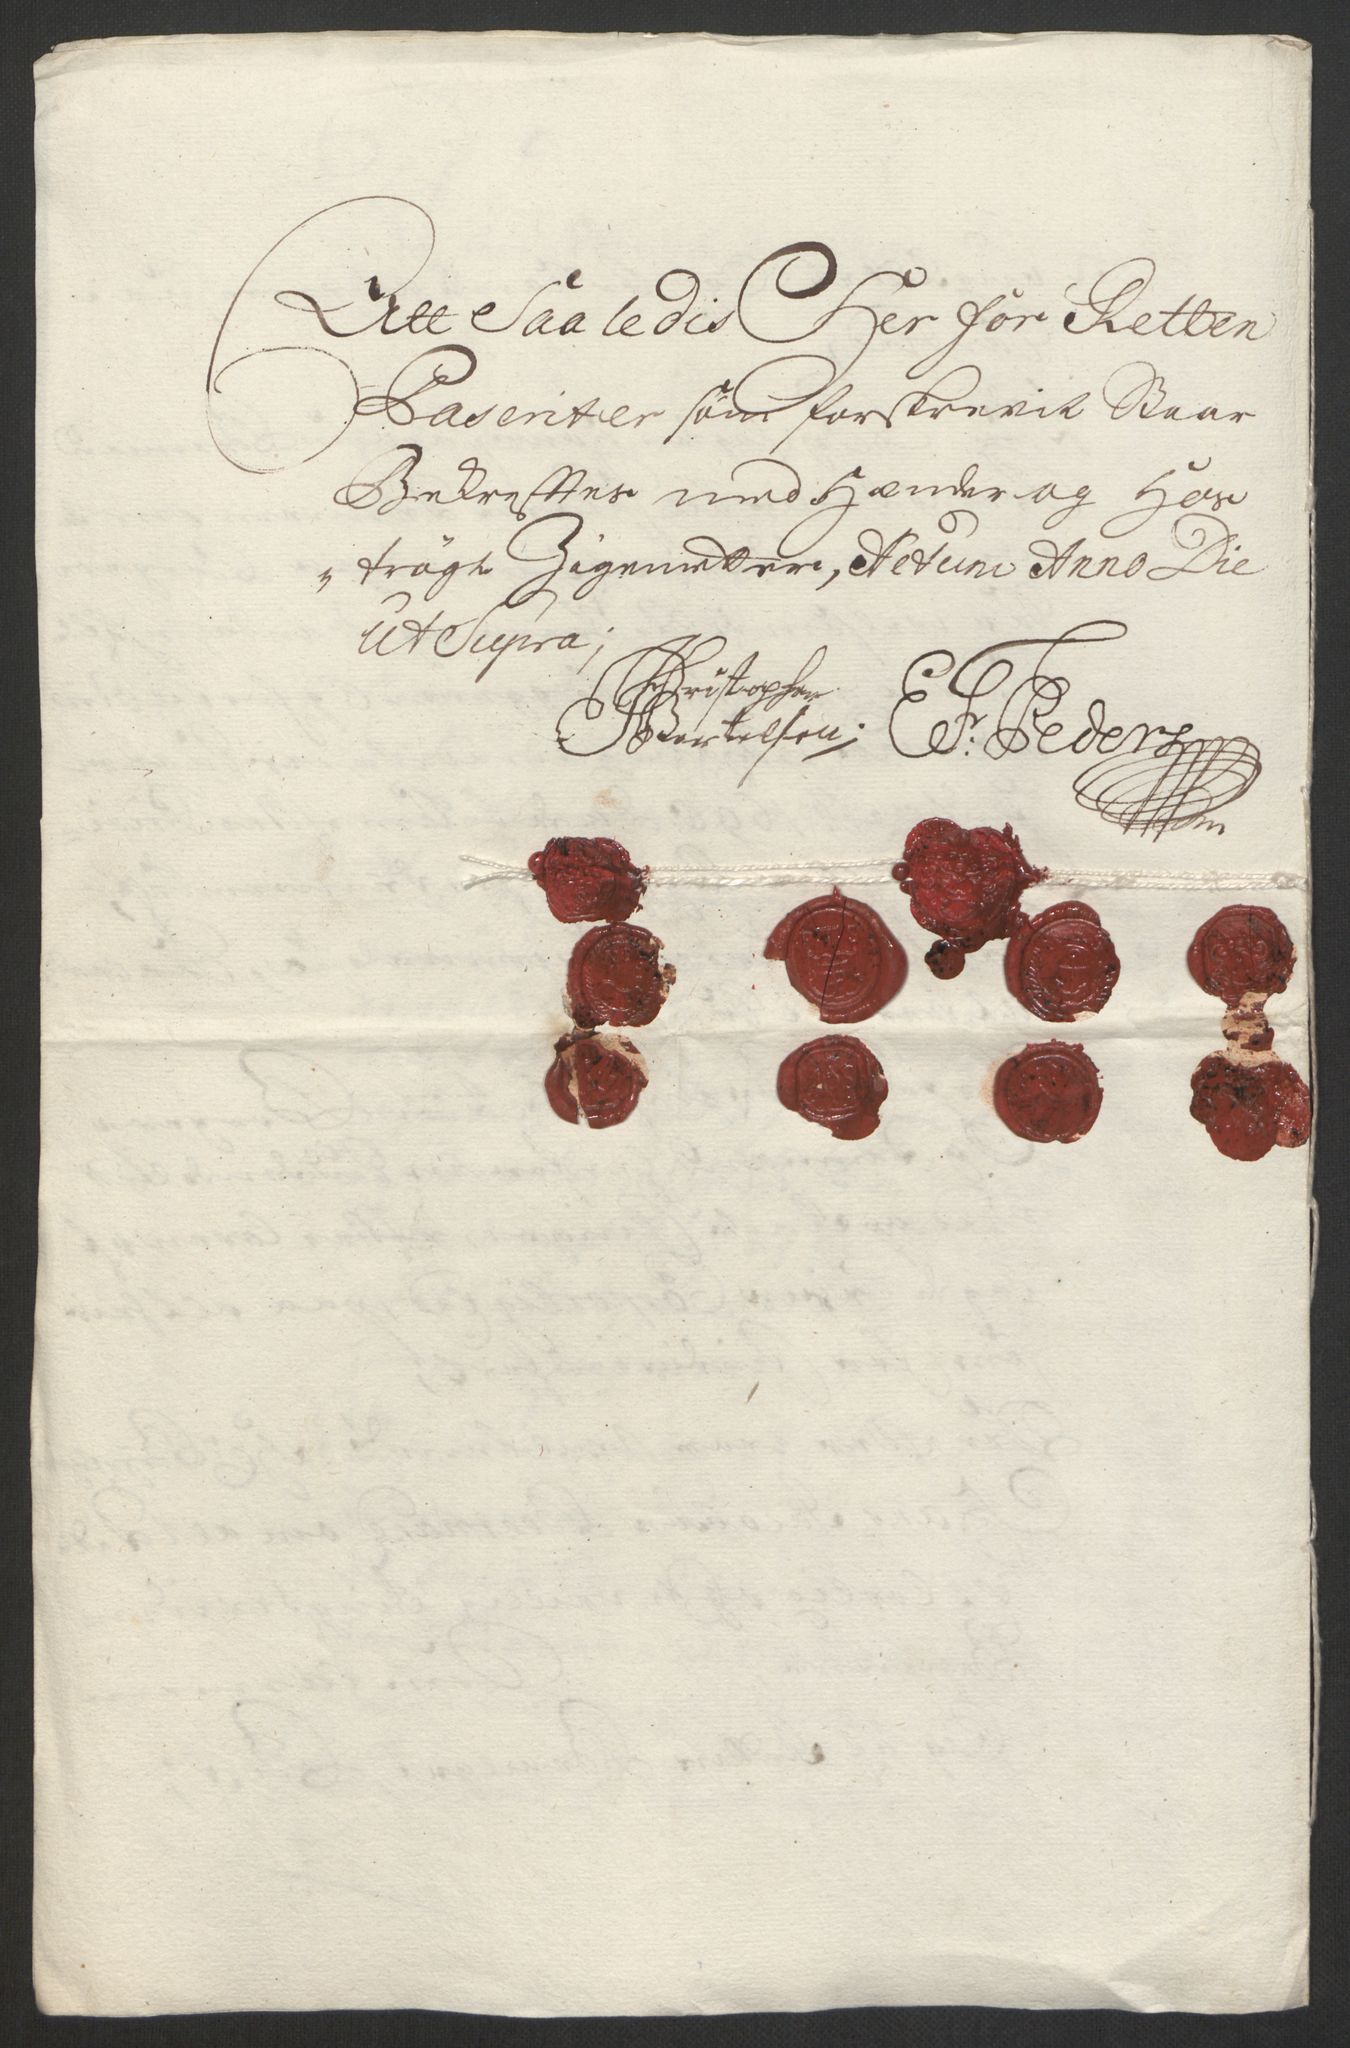 Att Saaledis Her for Retten
Paserit er som forskrevit Staar
Bekreftes med Hænder og Hos
„ trögt Zigenetter, Actum Anno Die
Ut Supra;
Christopher
Bertelsen; E. F: Peders